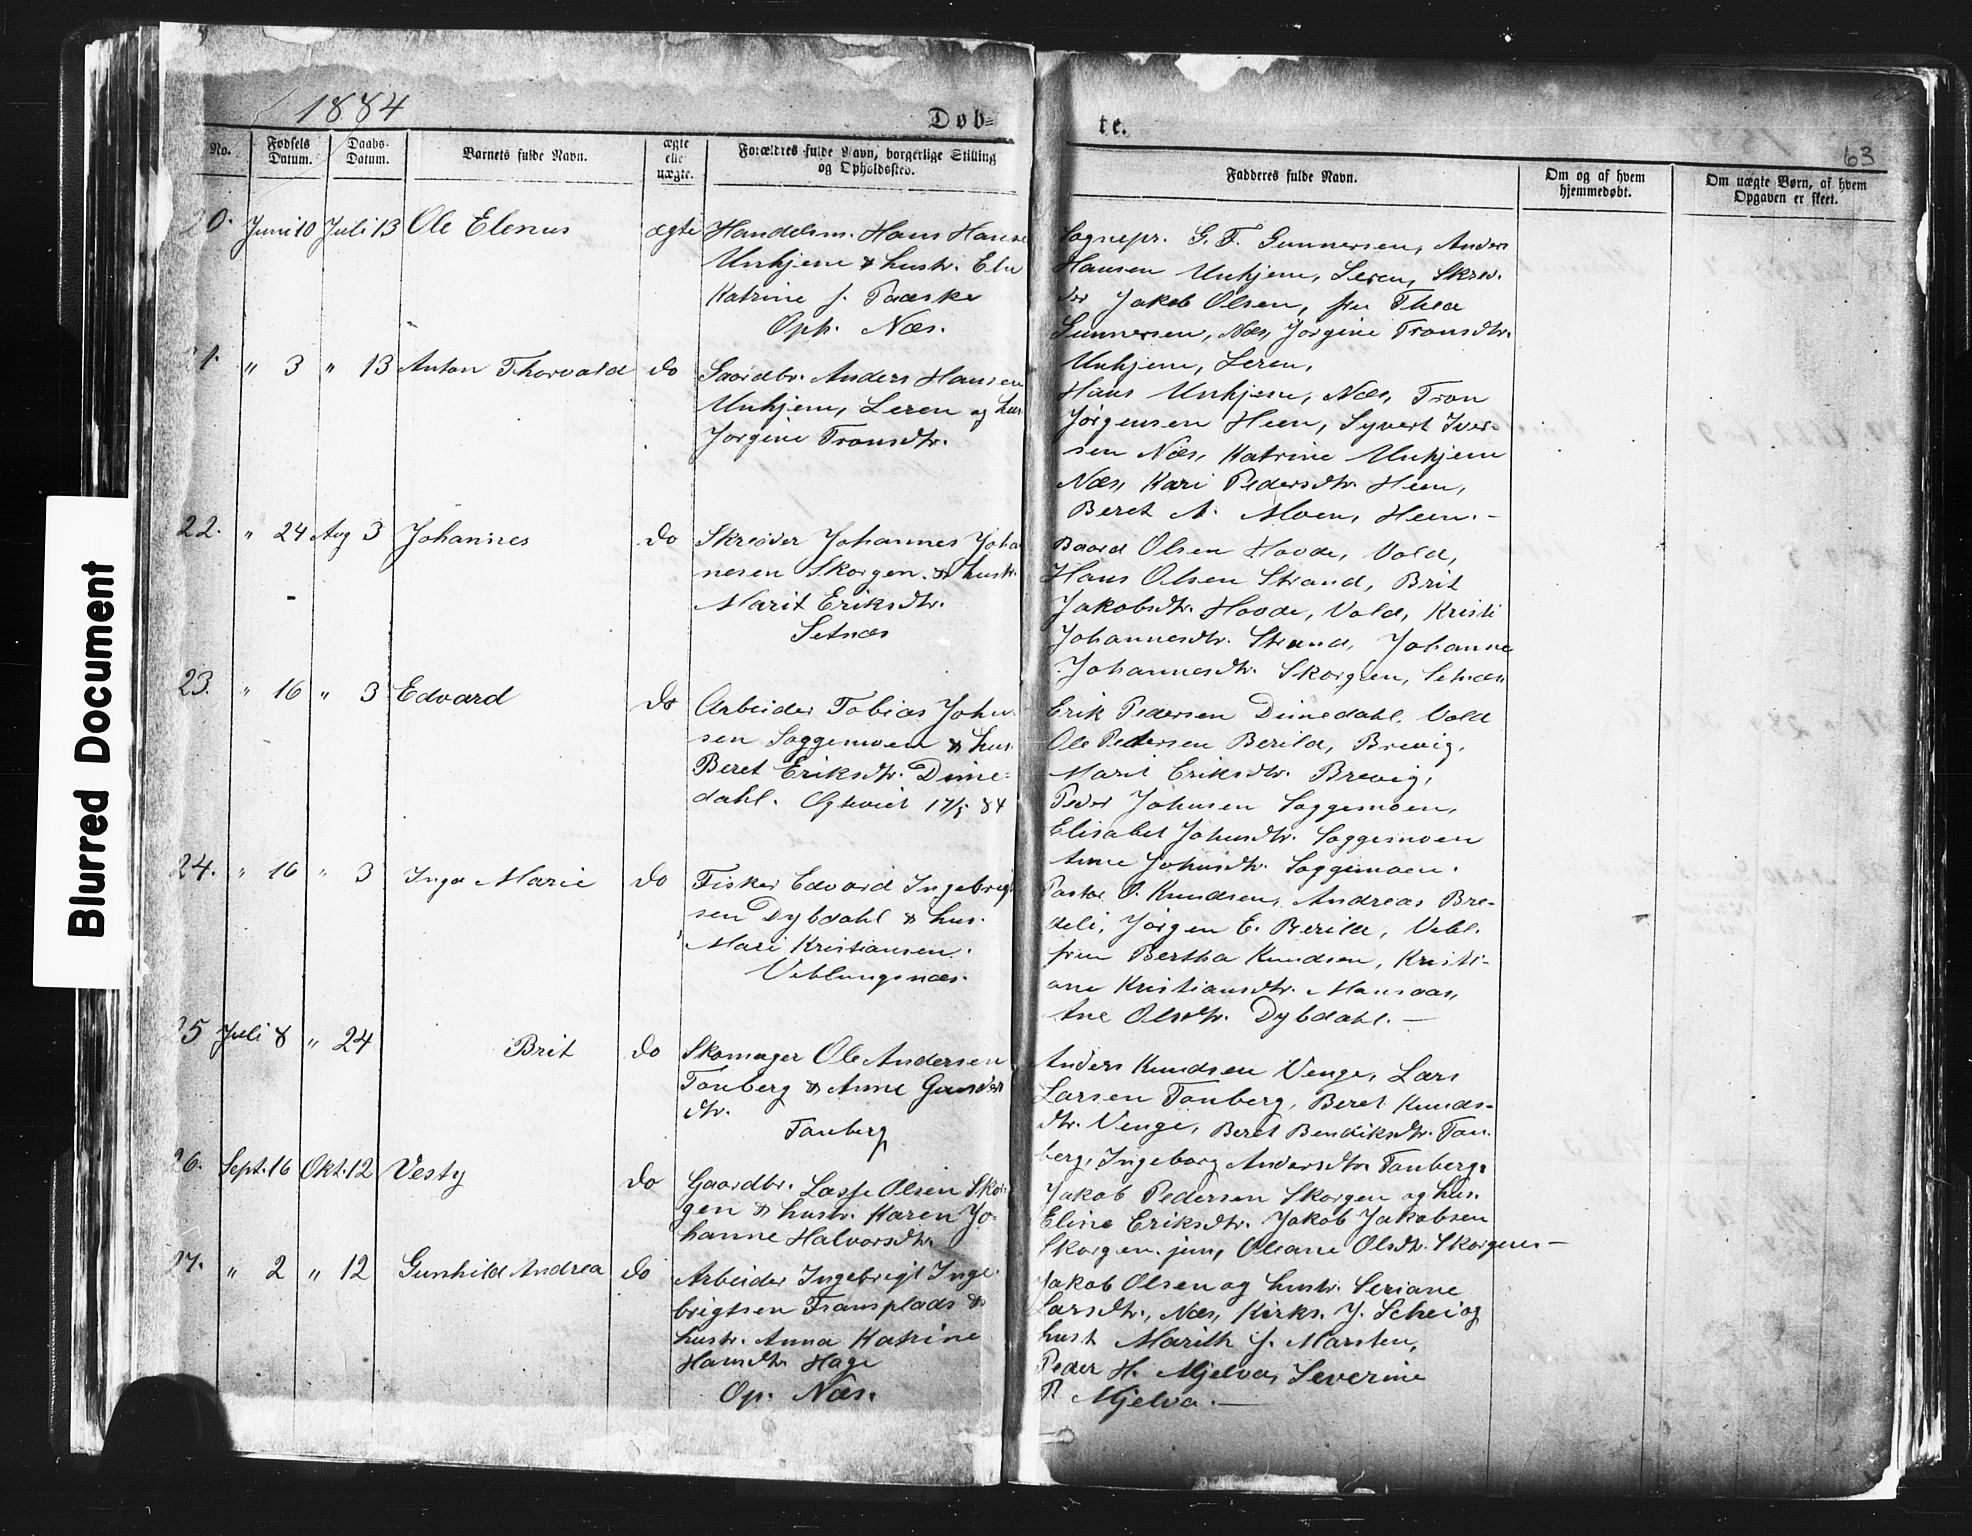 1884
Døb-
te.
63
No.
Fødsels
Datum.
Daabs-
Datum.
Barnets fulde Navn.
ægte
elle
uægte.
Forældres fulde Navn, borgerlige Stilling
og Opholdssted.
Fadderes fulde Navn.
Om og af hvem
hjemmedøbt.
Om uægte Børn, af hvem
Opgaven er skeet.
20. Juni 10 Juli 13 Ole Elenus ægte
Handelsm. Hans Hanse
Unhjem & hustr. Eln
Katrine f. Paaske
Opp. Næs.
Sognepr. G. F. Gunnersen, Anders
Hansen Unhjem, Leren, Skræd-
der Jakob Olsen, fru Thea
Gunnersen, Næs, Jørgine Tronsdtr.
Unhjem, Leren,
21. " 3 " 13 Anton Thorvald do
Gaardbr. Anders Hansen
Unhjem, Leren og hus
Jørgine Tronsdtr.
Hans Unhjem, Næs, Tron
Jørgensen Heen, Syvert Iver-
sen Næs, Katrine Unhjem
Næs, Kari Pedersdtr. Heen,
Beret A. Moen, Heen. -
22. " 24 Aug 3 Johannes do
Skræder Johannes Joha
nesen Skorgen & hustr.
Marit Eriksdtr.
Setnæs
Baard Olsen Hovde, Vold,
Hans Olsen Strand, Brit
Jakobsdtr. Hovde, Vold, Kristi
Johannesdtr. Strand, Johanne
Johannesdtr. Skorgen, Setnæs
23. " 16 " 3 Edvard do
Arbeider Tobias John-
sen Soggemoen & hus.
Beret Eriksdtr. Dime-
dahl. Ogtviet 17/5 84
Erik Pedersen Dimedahl. Vold
Ole Pedersen Berild, Brevig,
Marit Eriksdtr. Brevig,
Peder Johnsen Soggemoen,
Elisabet Johnsdtr. Soggemoen
Anne Johnsdtr. Soggemoen.
24. " 16 " 3 Inga Marie do
Fisker Edvard Ingebrigt
sen Dybdahl & hus.
Mari Kristiansen.
Veblungsnæs.
Pastor O. Knudsen, Andreas Bre-
deli, Jørgen E. Berild, Vebl.
fru Bertha Knudsen, Kristi-
ane Kristiansdtr. Mansaas,
Ane Olsdtr. Dybdahl. -
25 Juli 8 " 24 Brit do
Skomager Ole Andersen
Tonberg & Anne Gunder
dtr.
Tonberg
Anders Knudsen Venge, Lars
Larsen Tonberg, Beret Knuds-
dtr. Venge, Beret Bendiksdtr. Ton-
berg, Ingeborg Andersdtr. Tonberg.
26. Sept. 16 Okt. 12 Vesty do
Gaardbr. Lasse Olsen Skor-
gen & hustr. Karen Jo-
hanne Halvorsdtr.
Jakob Pedersen Skorgen og hus.
Eline Eriksdtr. Jakob Jakobsen
Skorgen jun, Oleane Olsdtr. Skorgen -
27. " 2 " 12 Gunhild Andrea do
Arbeider Ingebrigt Inge-
brigtsen Framplads &
hustr. Anna Katrine
Hansdtr. Hage
Op. Næs.
Jakob Olsen og hustr. Seriane
Larsdtr., Næs, Kirks. J. Schei og
hust Marith f. Marsten,
Peder H. Mjelva, Severine
P. Mjelva. -
Blurred Document